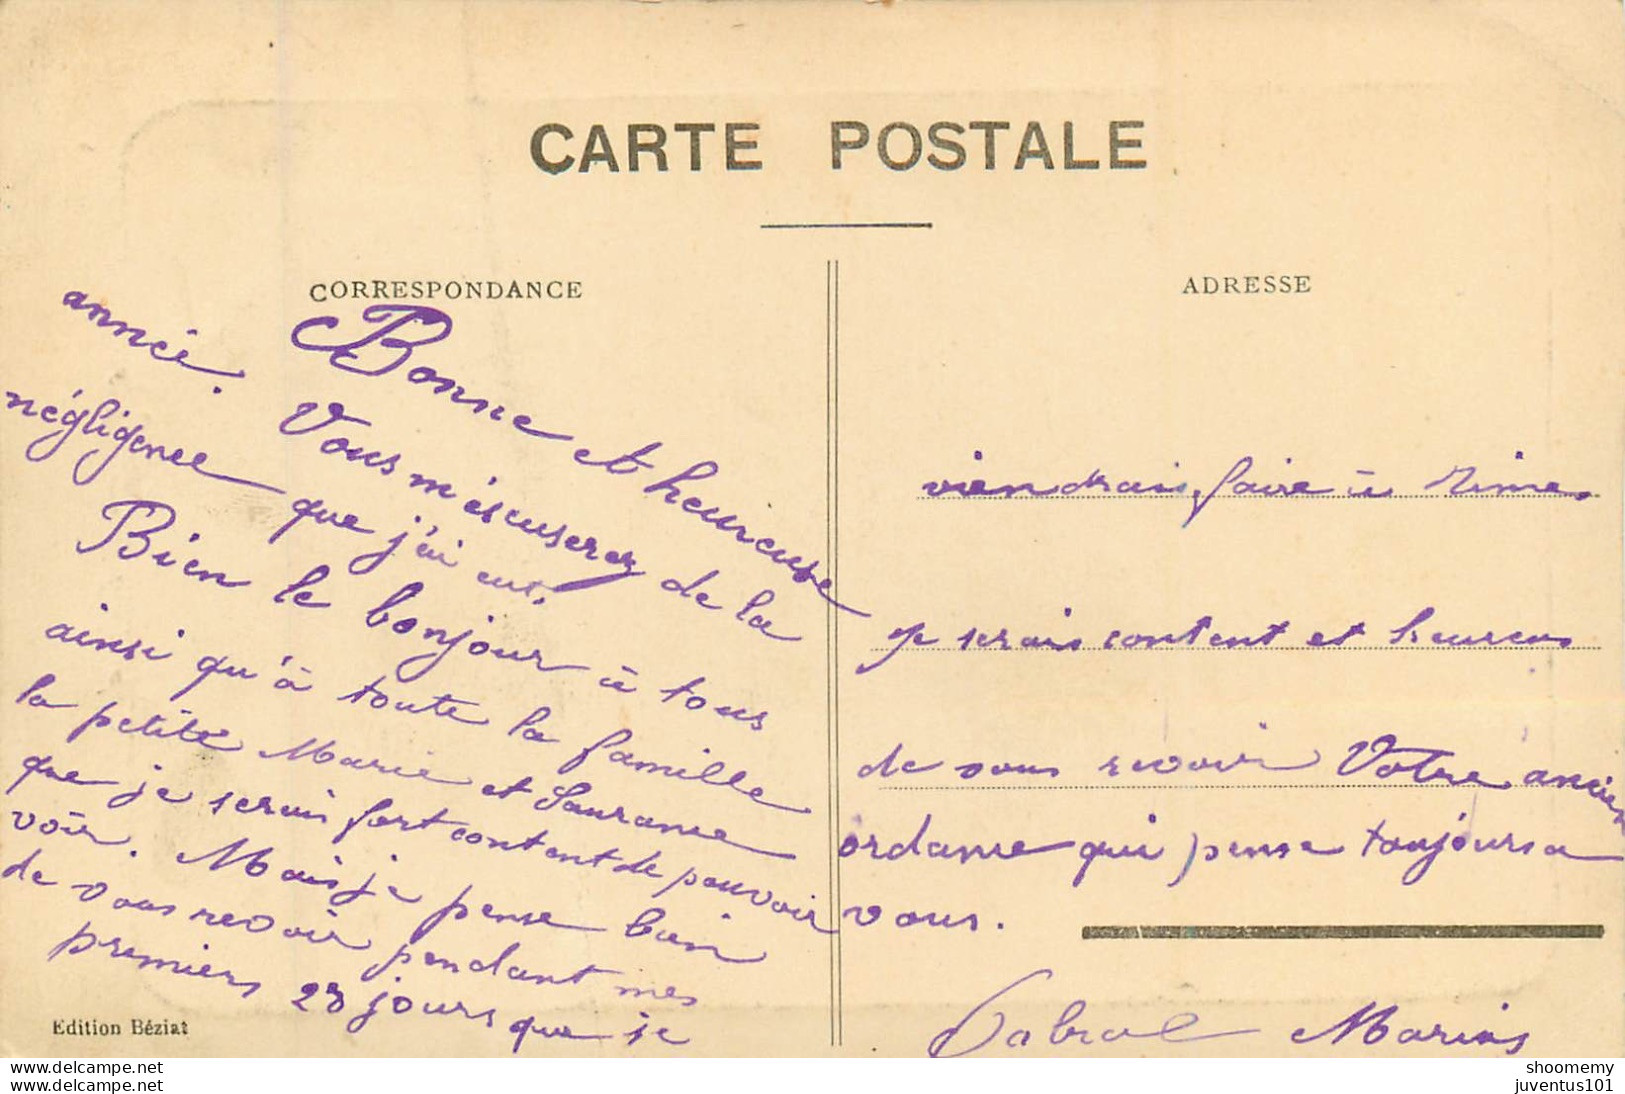 CARTE POSTALE
CORRESPONDANCE
ADRESSE
Bonne et heureuse
année. Vous m'éscuserez de la
négligence que j'ai eut.
Bien le bonjour à tous
ainsi qu'à toute la famille
la petite Marie et Laurance
que je serais fort content de pouvoir
voir. Mais je pense bien
de vous revoir pendant mes
premiers 28 jours que je
viendrais faire à Nimes
je serais content et heureux
de vous revoir Votre ancien
ordanse qui pense toujours a
vous.
Cabrol Marius
Edition Béziat
shoomemy
juventus101
https://www.delcampe.net
https://www.delcampe.net